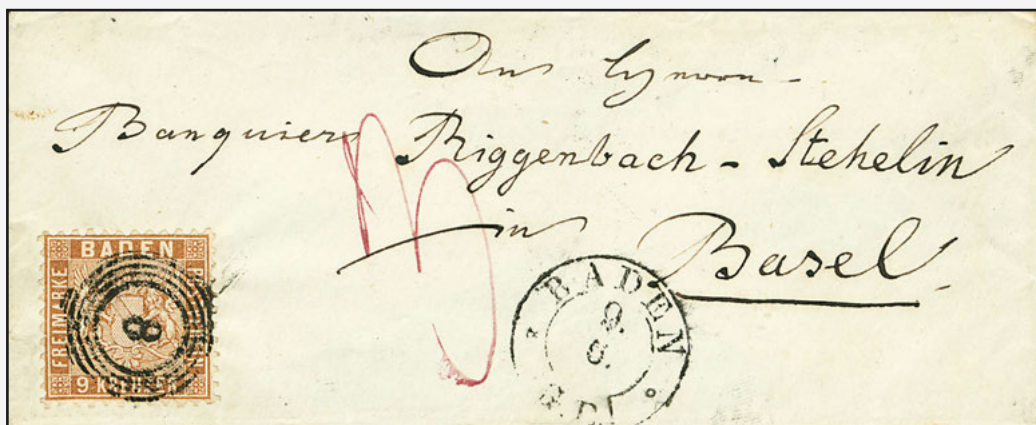 Herrn
Banquiers Riggenbach - Stehelin
in
Basel
BADEN
FREIMARKE
9 KREUZER
8
BADEN
9.
6.